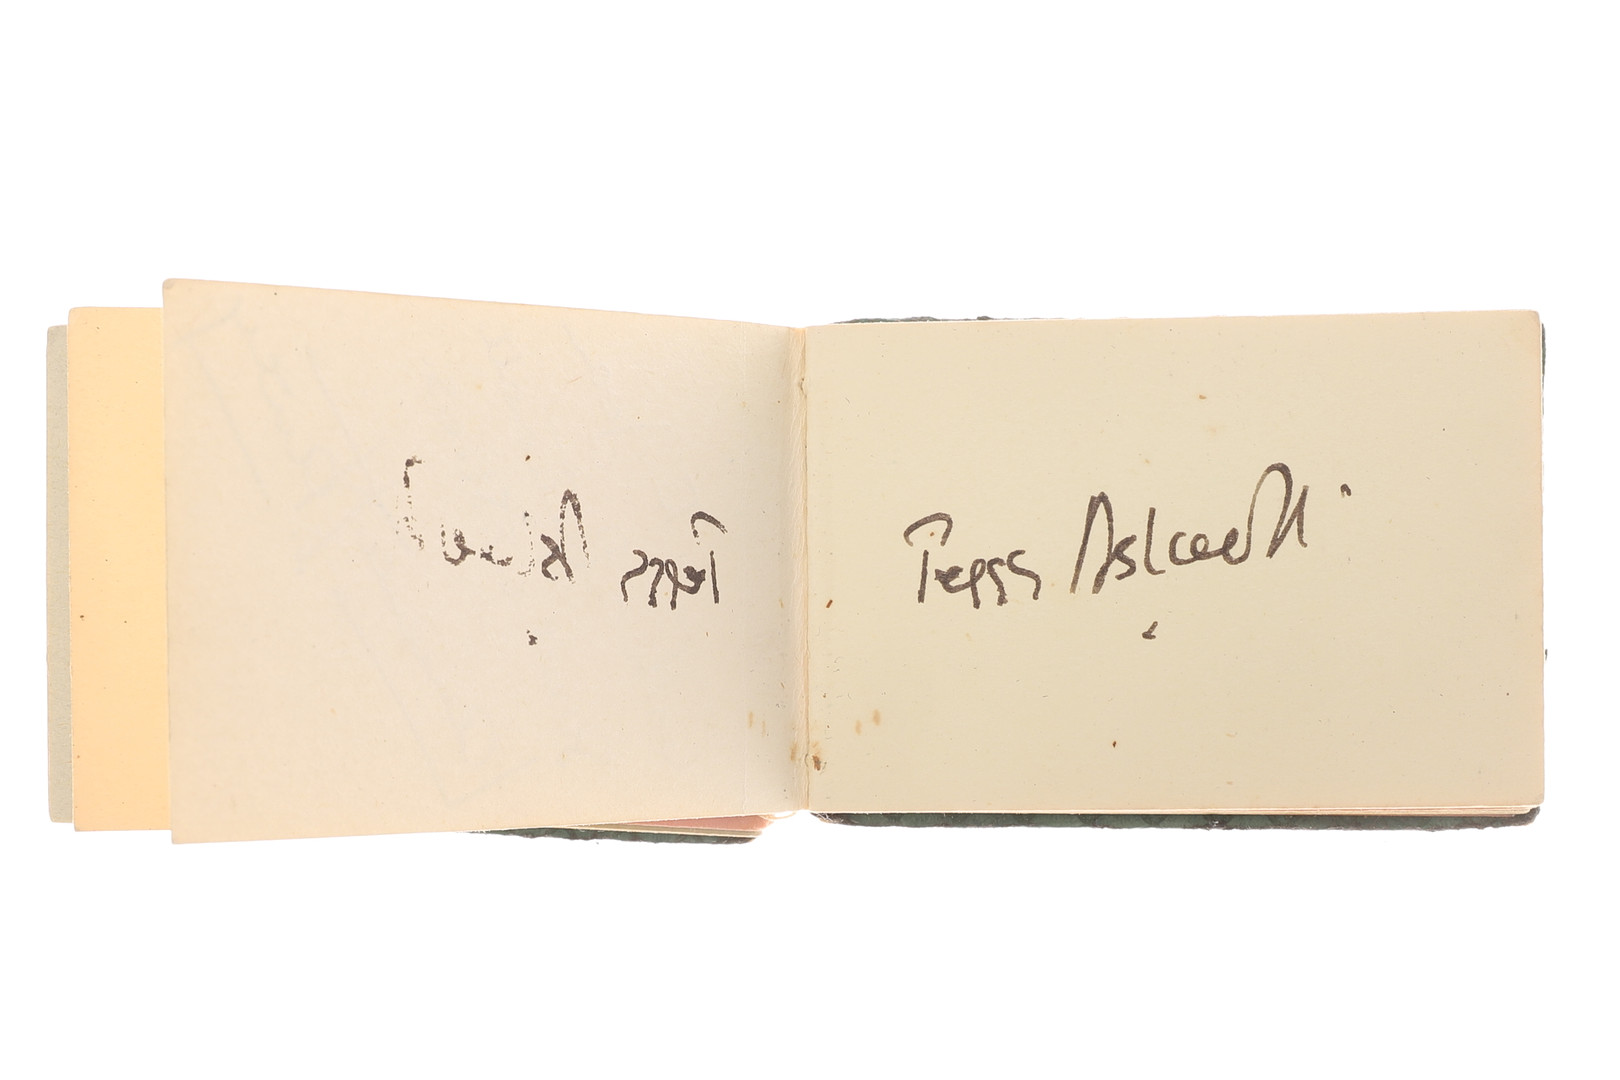 Peggy Ashcroft